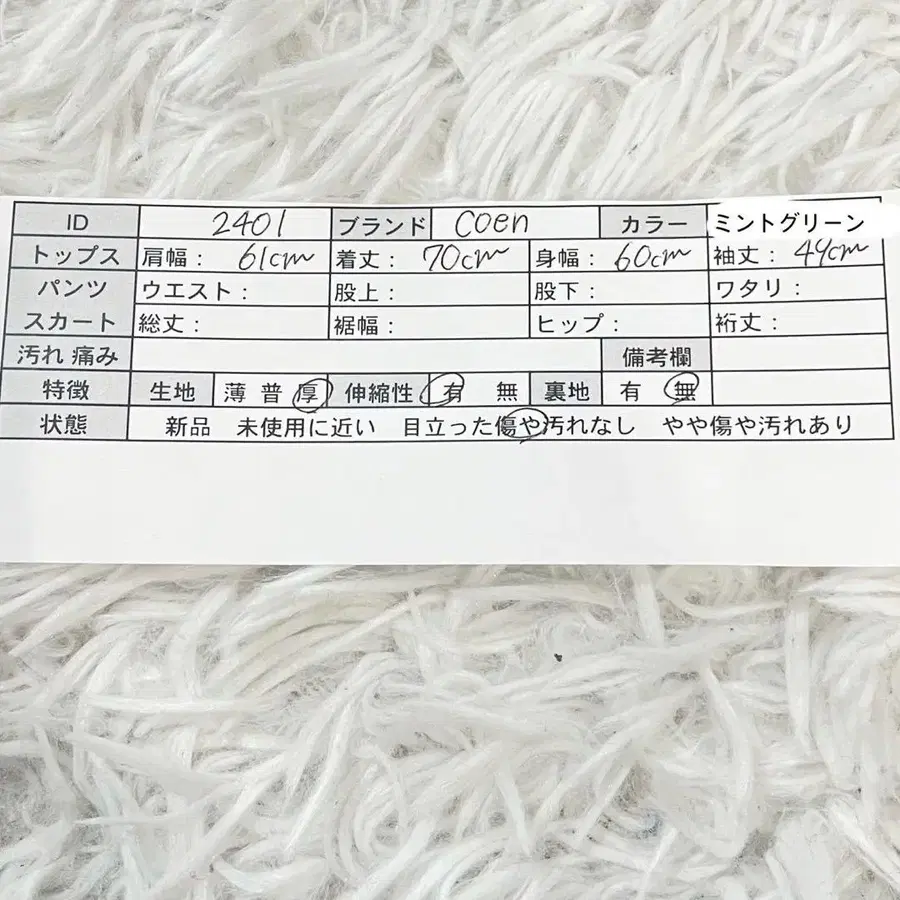 ID 2401 ブランド coen カラー ミントグリーン
トップス 肩幅： 61cm 着丈： 70cm 身幅： 60cm 袖丈： 44cm
パンツ ウエスト： 股上： 股下： ワタリ：
スカート 総丈： 裾幅： ヒップ： 裄丈：
汚れ 痛み 備考欄
特徴 生地 薄 普 厚 伸縮性 有 無 裏地 有 無
状態 新品 未使用に近い 目立った傷や汚れなし やや傷や汚れあり